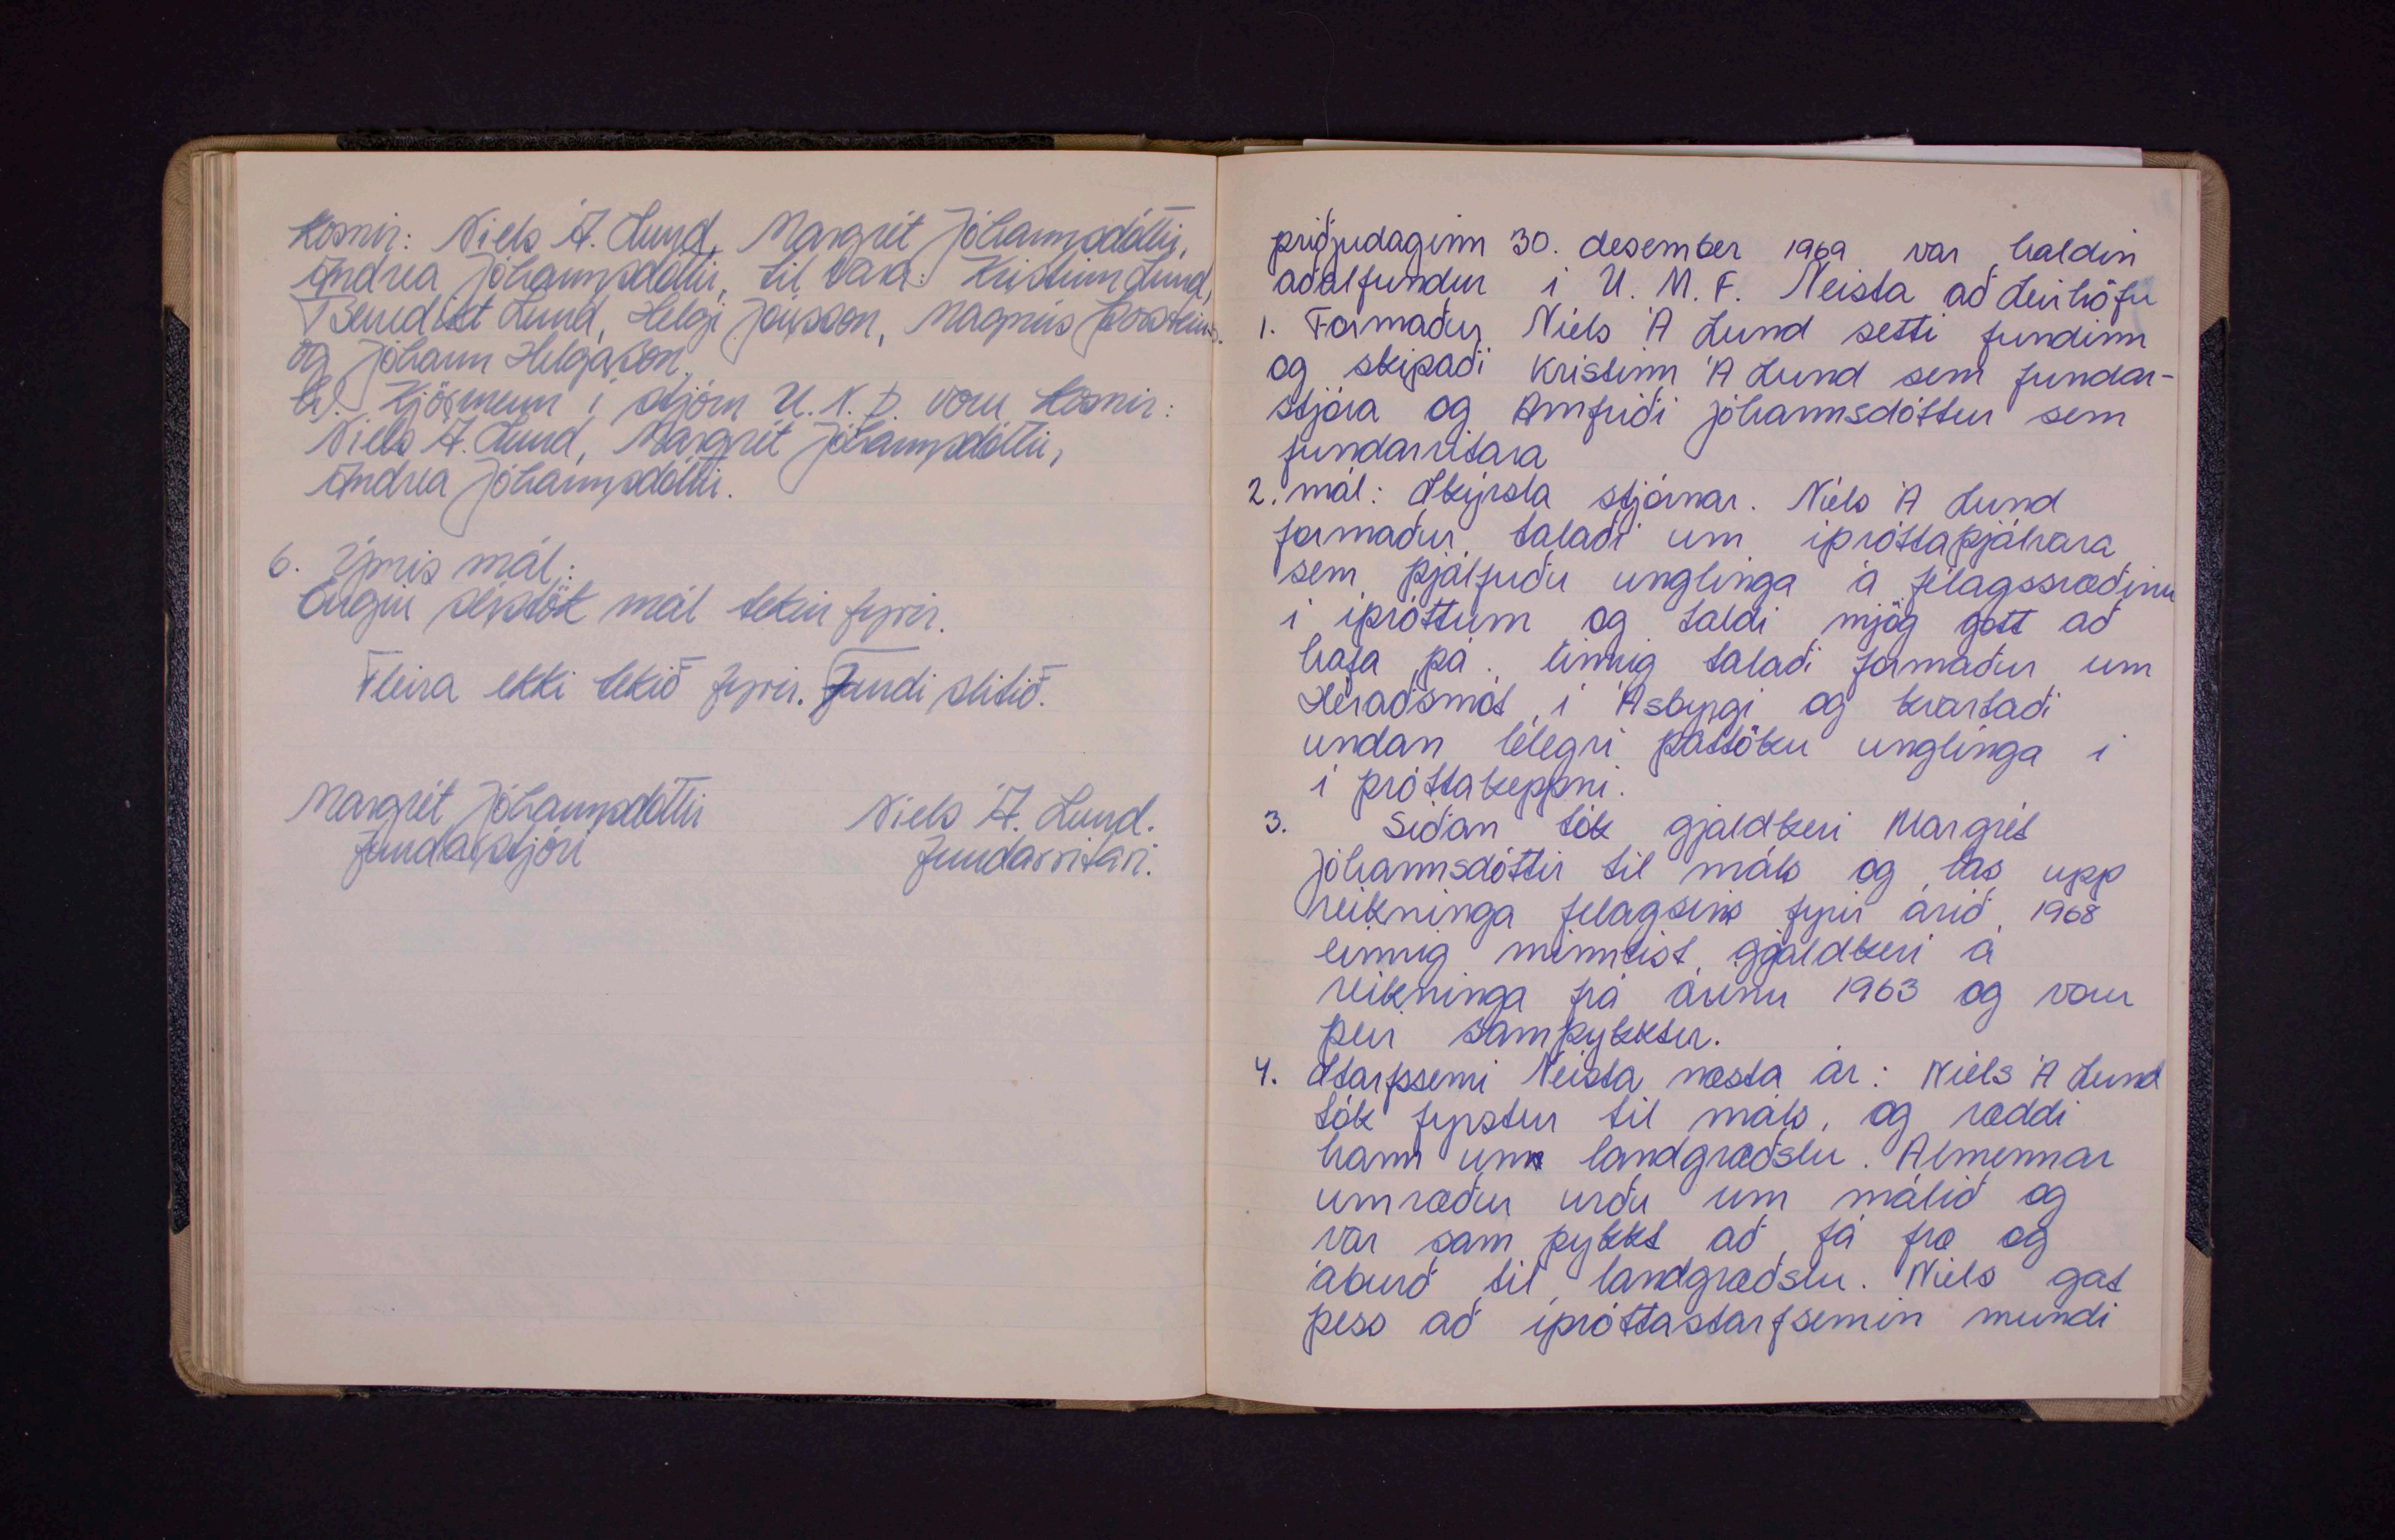 kosnir: Niels Á. Lund, Margrét Jóhannsdóttir,
Andrea Jóhannsdóttir, til vara: Kristinn Lund,
Benedikt Lund, Helgi Jónsson, Magnús Þorsteins.
og Jóhann Helgason.
b). Kjörmenn í stjórn U.N.Þ. voru kosnir:
Niels Á. Lund, Margrét Jóhannsdóttir,
Andrea Jóhannsdóttir.
6. Ýmis mál:
Engin sérstök mál tekin fyrir.
Fleira ekki tekið fyrir. Fundi slitið.
Margrét Jóhannsdóttir
fundarstjóri
Niels Á. Lund.
fundarritari.
þriðjudaginn 30. desember 1969 var haldin
aðalfundur í U. M. F. Neista að Leirhöfn
1. Formaður Níels Á Lund setti fundinn
og skipaði Kristinn Á Lund sem fundar-
stjóra og Arnfríði Jóhannsdóttur sem
fundarritara
2. mál: Skýrsla stjórnar. Níels Á Lund
formaður talaði um íþróttaþjálvara
sem þjálfuðu unglinga á félagssvæðinu
í íþróttum og taldi mjög gott að
hafa þá. Einnig talaði formaður um
Héraðsmót í Ásbyrgi og kvartaði
undan lélegri þáttöku unglinga í
í þróttakeppni.
3. Síðan tók gjaldkeri Margrét
Jóhannsdóttir til máls og las upp
reikninga félagsins fyrir árið 1968
einnig minntist gjaldkeri á
reikninga frá árinu 1963 og voru
þeir samþykktir.
4. Starfssemi Neista næsta ár: Níels Á Lund
tók fyrstur til máls, og ræddi
hann um landgræðslu. Almennar
umræður urðu um málið og
var sam þykkt að fá fræ og
áburð til landgræðslu. Níels gat
þess að íþróttastarfsemin mundi